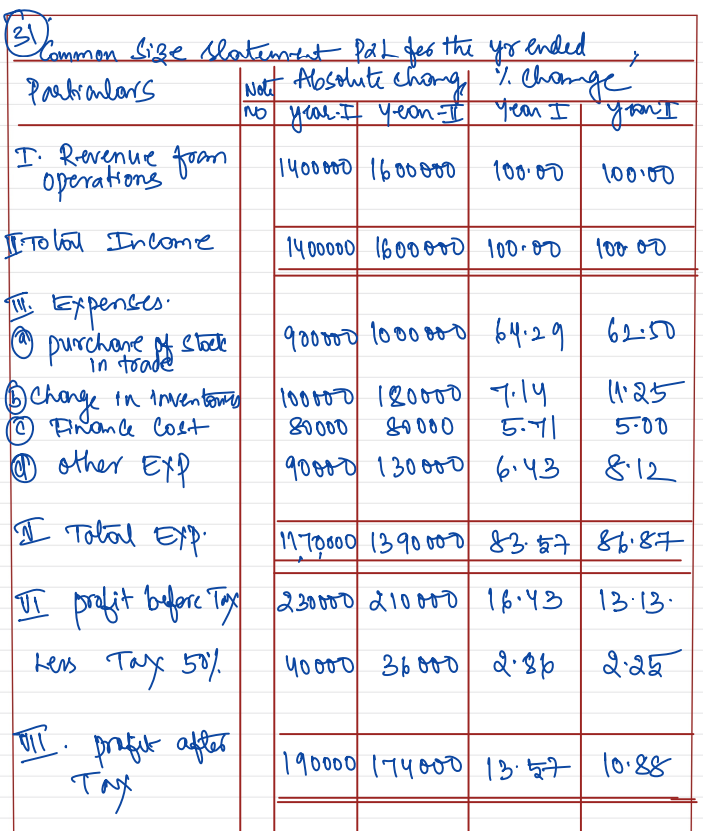 31
Common Size Statement P&L for the yr ended ,
Particulars Note Absolute change % Change
NO year-I year-II year I year II
I. Revenue from 1400000 1600000 100.00 100.00
operations
II. Total Income 1400000 1600000 100.00 100.00
III. Expenses.
(a) purchase of stock 900000 1000000 64.29 62.50
in trade
(b) Change in inventories 100000 180000 7.14 11.25
(c) Finance Cost 80000 80000 5.71 5.00
(d) other EXP 90000 130000 6.43 8.12
IV Total EXP. 1170000 1390000 83.57 86.87
VI profit before Tax 230000 210000 16.43 13.13.
Less Tax 50% 40000 36000 2.86 2.25
VII. profit after 190000 174000 13.57 10.88
Tax